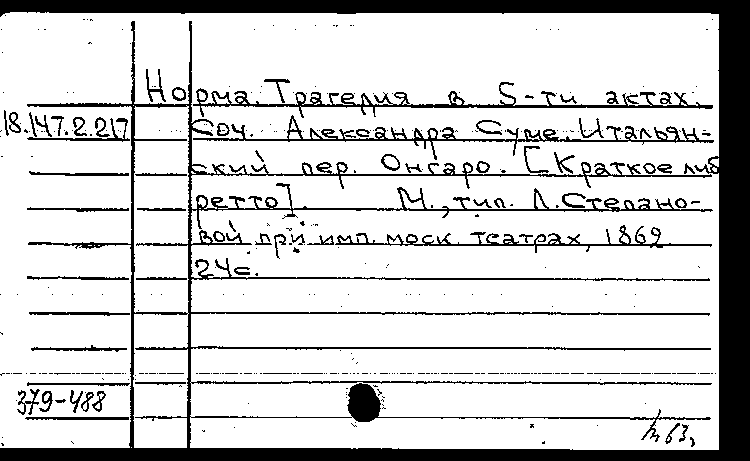 Норма. Трагедия в 5-ти актах.
18.147.2.217
Соч. Александра Суме. Итальян-
ский пер. Онгаро. [Краткое либ
ретто]. М., тип. Л. Степано-
вой при имп. моск. театрах, 1862
24с.
379-488
63,